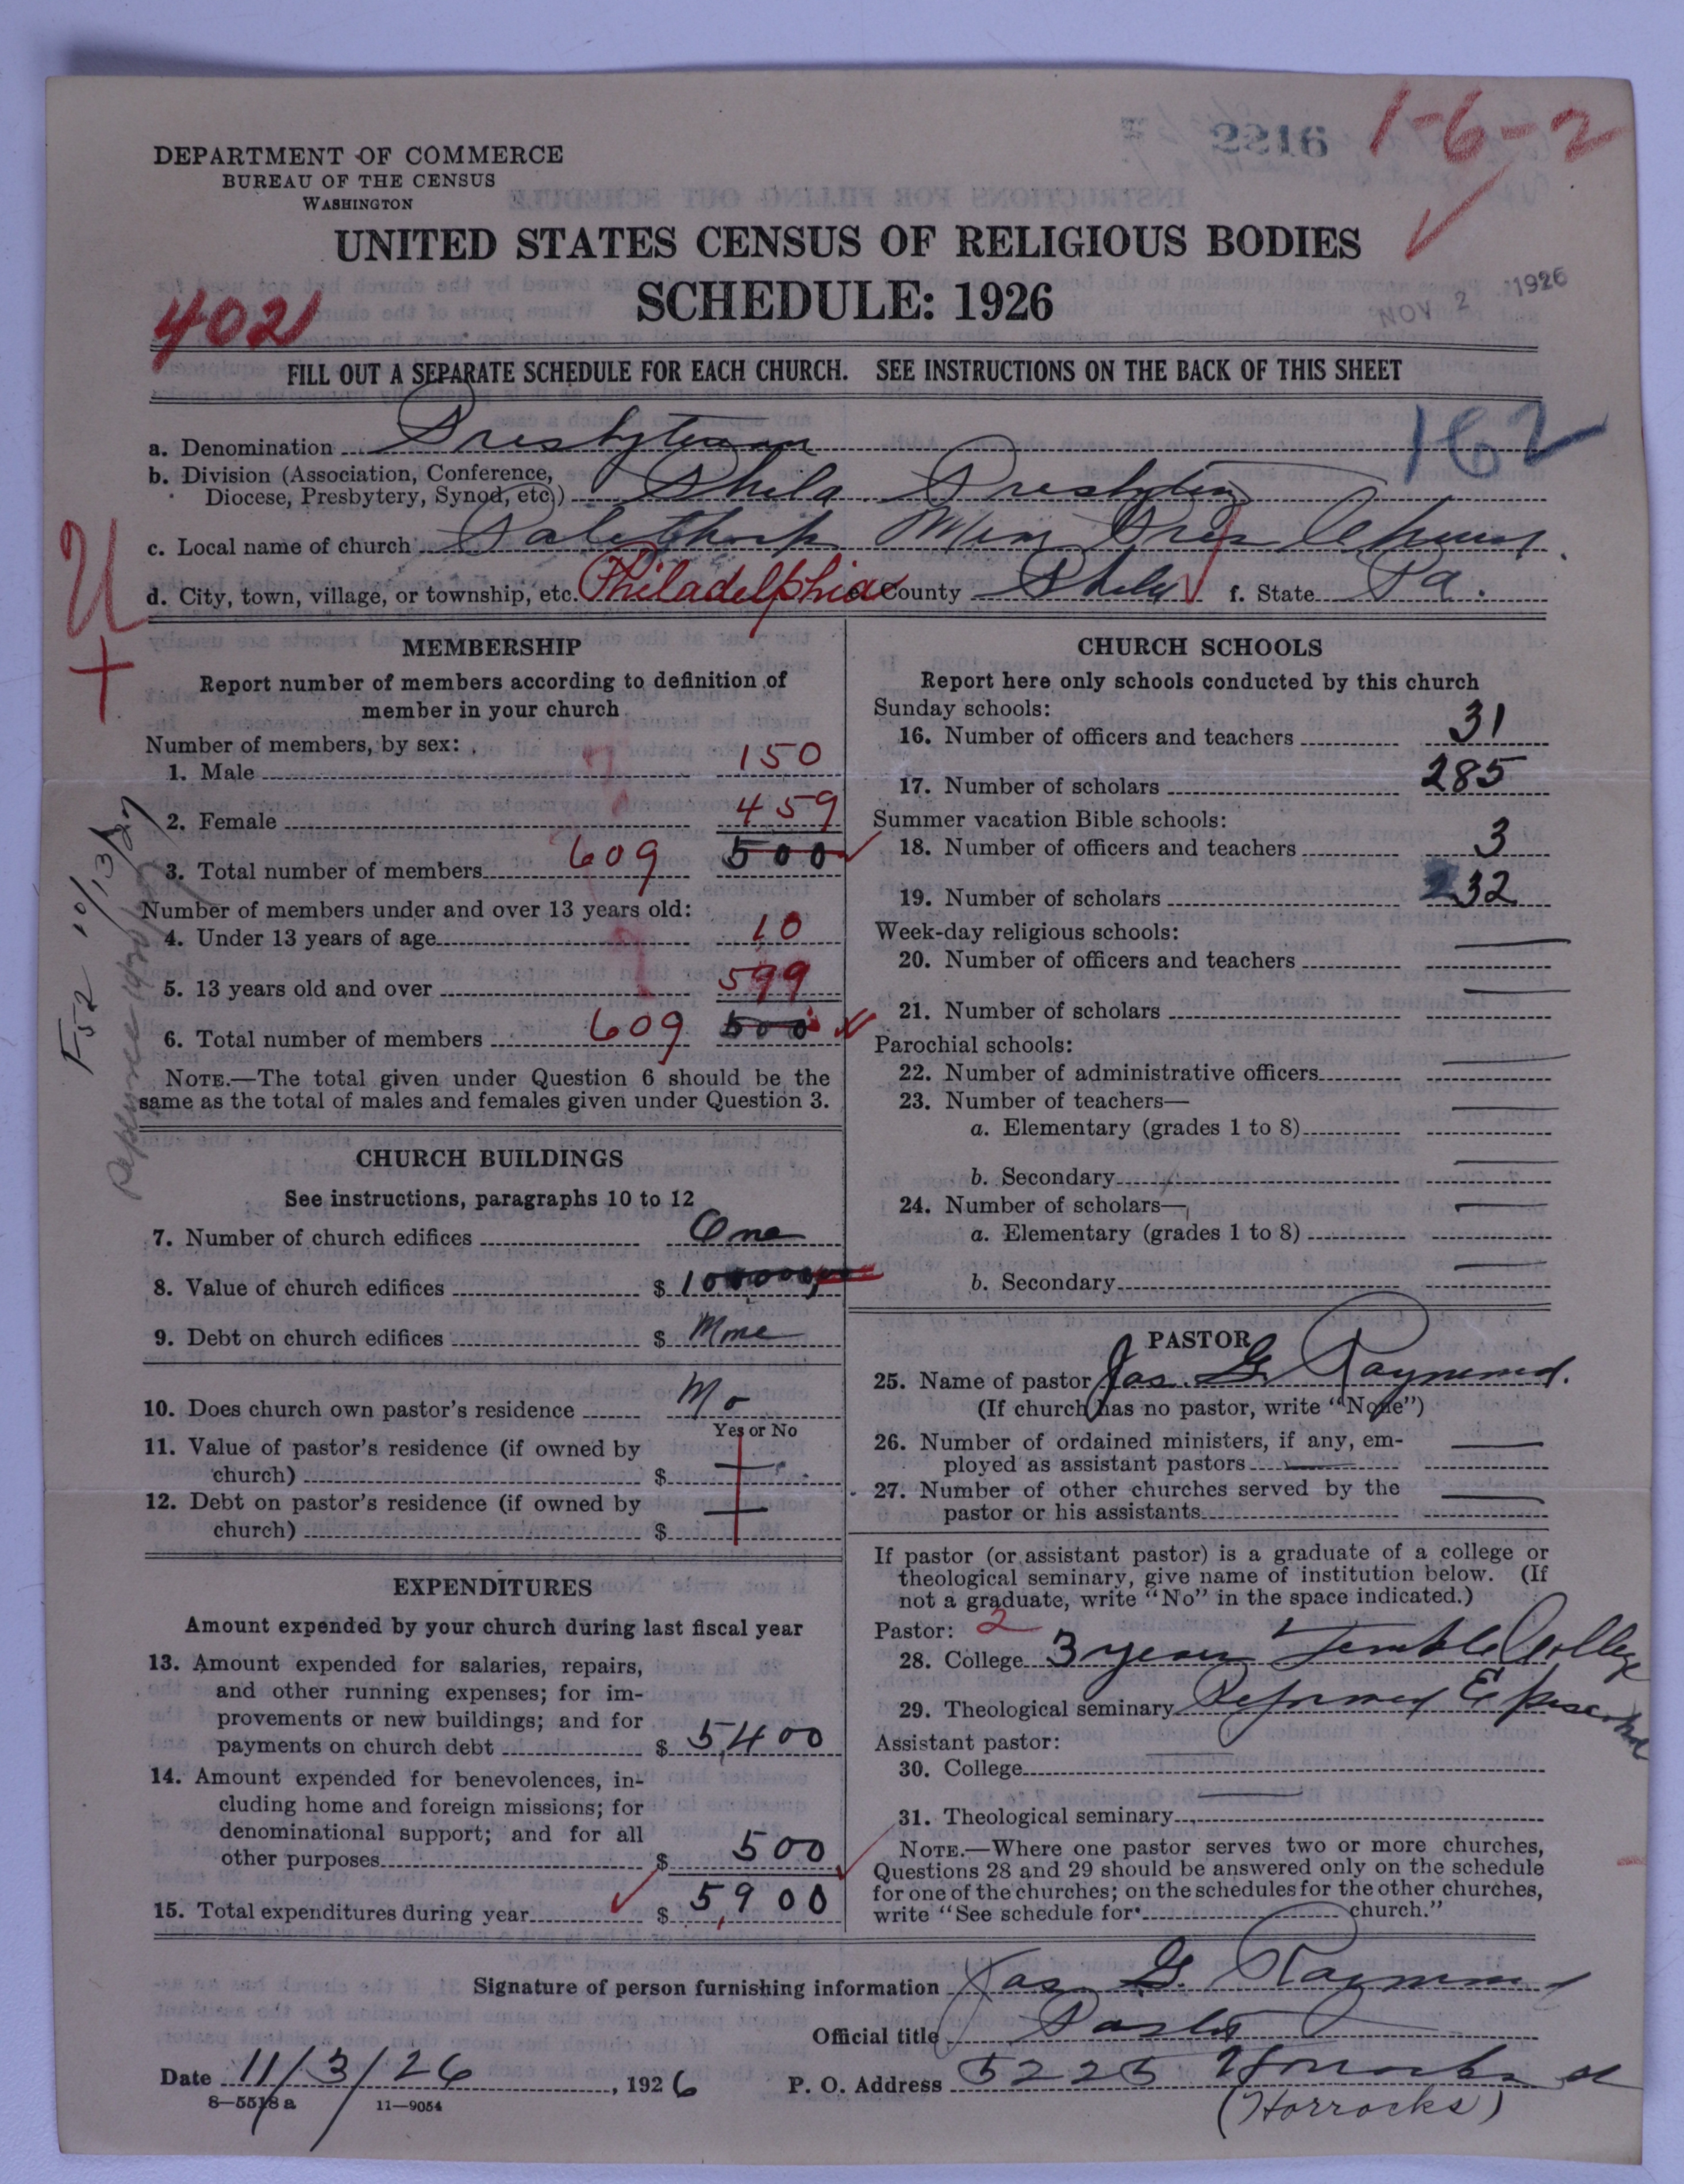 2216
1-6-2
DEPARTMENT OF COMMERCE
BUREAU OF THE CENSUS
WASHINGTON
UNITED STATES CENSUS OF RELIGIOUS BODIES
SCHEDULE: 1926
402
NOV 2 1926
FILL OUT A SEPARATE SCHEDULE FOR EACH CHURCH. SEE INSTRUCTIONS ON THE BACK OF THIS SHEET
162
a. Denomination Presbyterian
b. Division (Association, Conference,
Diocese, Presbytery, Synod, etc.) Phila. Presbytery
c. Local name of church Mem Pres Church
d. City, town, village, or township, etc. Philadelphia e. County Phila f. State Pa.
U
+
MEMBERSHIP
Report number of members according to definition of
member in your church
Number of members, by sex:
1. Male 150
2. Female 459
3. Total number of members 609 500
Number of members under and over 13 years old:
4. Under 13 years of age 10
5. 13 years old and over 599
6. Total number of members 609 500
NOTE.—The total given under Question 6 should be the
same as the total of males and females given under Question 3.
F52 10/13/27
CHURCH BUILDINGS
See instructions, paragraphs 10 to 12
7. Number of church edifices One
8. Value of church edifices $ 100000
9. Debt on church edifices $ None
10. Does church own pastor's residence No
Yes or No
11. Value of pastor's residence (if owned by
church) $
12. Debt on pastor's residence (if owned by
church) $
EXPENDITURES
Amount expended by your church during last fiscal year
13. Amount expended for salaries, repairs,
and other running expenses; for im-
provements or new buildings; and for
payments on church debt $ 5,400
14. Amount expended for benevolences, in-
cluding home and foreign missions; for
denominational support; and for all
other purposes $ 500
15. Total expenditures during year $ 5,900
CHURCH SCHOOLS
Report here only schools conducted by this church
Sunday schools:
16. Number of officers and teachers 31
17. Number of scholars 285
Summer vacation Bible schools:
18. Number of officers and teachers 3
19. Number of scholars 232
Week-day religious schools:
20. Number of officers and teachers
21. Number of scholars
Parochial schools:
22. Number of administrative officers
23. Number of teachers—
a. Elementary (grades 1 to 8)
b. Secondary
24. Number of scholars—
a. Elementary (grades 1 to 8)
b. Secondary
PASTOR
25. Name of pastor Jas. G. Raymond.
(If church has no pastor, write "None")
26. Number of ordained ministers, if any, em-
ployed as assistant pastors
27. Number of other churches served by the
pastor or his assistants
If pastor (or assistant pastor) is a graduate of a college or
theological seminary, give name of institution below. (If
not a graduate, write "No" in the space indicated.)
Pastor: 2
28. College 3 years Temple College
29. Theological seminary Reformed Episcopal
Assistant pastor:
30. College
31. Theological seminary
NOTE.—Where one pastor serves two or more churches,
Questions 28 and 29 should be answered only on the schedule
for one of the churches; on the schedules for the other churches,
write "See schedule for church."
Signature of person furnishing information Jas. G. Raymond
Official title Pastor
Date 11/3/26, 1926 P. O. Address 5225 Horrocks st
(Horrocks)
8—5518 a 11—9054